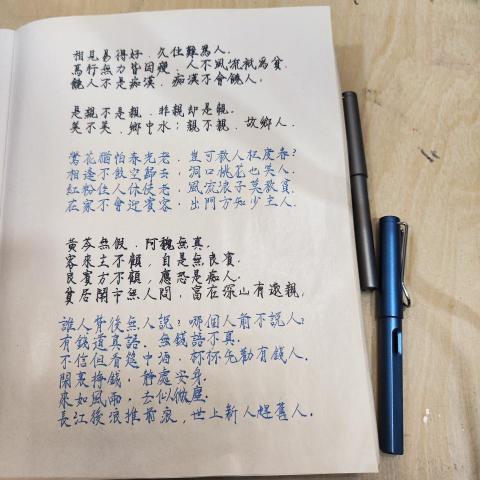 相見易得好，久住難為人。
馬行無力皆因瘦，人不風流祇為貧。
饒人不是痴漢，痴漢不會饒人。
是親不是親，非親却是親。
美不美，鄉中水；親不親，故鄉人。
鶯花猶怕春光老，豈可教人枉度春？
相逢不飲空歸去，洞口桃花也笑人。
紅粉佳人休使老，風流浪子莫教貧。
在家不會迎賓客，出門方知少主人。
黃芩無假，阿魏無真。
客來主不顧，自是無良賓。
良賓方不顧，應恐是痴人。
貧居鬧市無人問，富在深山有遠親。
誰人背後無人說？哪個人前不說人？
有錢道真語，無錢語不真。
不信但看筵中酒，杯杯先勸有錢人。
鬧裏掙錢，靜處安身。
來如風雨，去似微塵。
長江後浪推前浪，世上新人趕舊人。